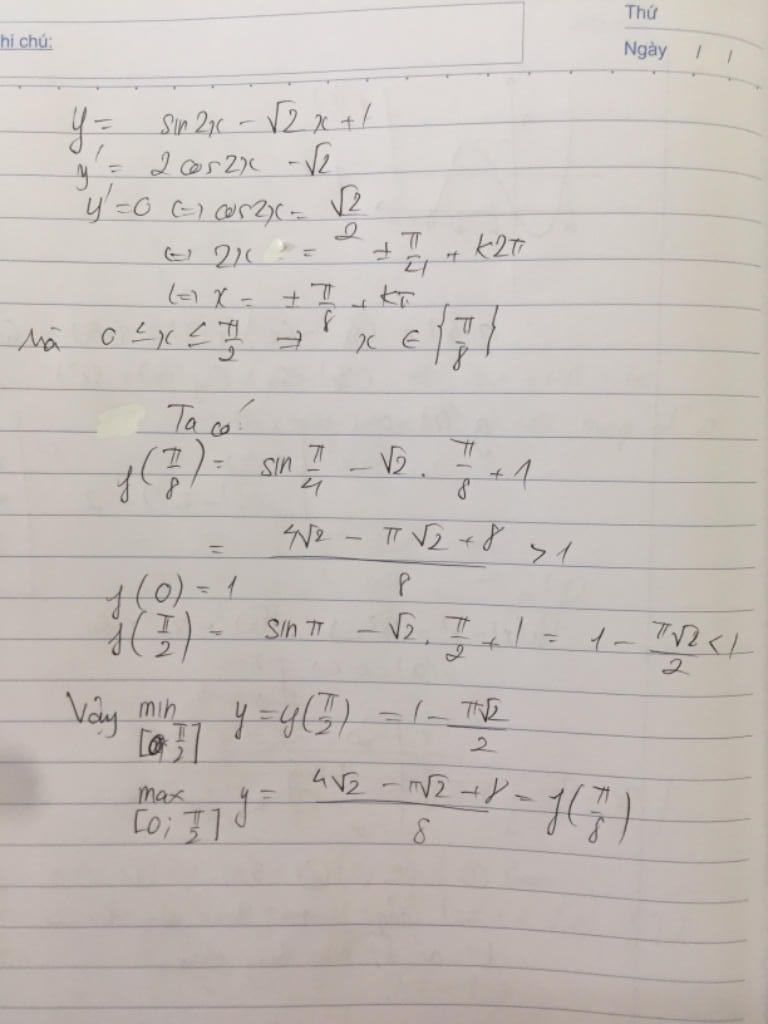 Thứ
hi chú:
Ngày / /
y = sin2x - √2 x + 1
y' = 2cos2x - √2
y' = 0 (=) cos2x = √2/2
(=) 2x = ± π/4 + k2π
(=) x = ± π/8 + kπ
Mà 0 ≤ x ≤ π/2 => x ∈ {π/8}
Ta có:
y(π/8) = sin π/4 - √2 . π/8 + 1
= (4√2 - π√2 + 8)/8 > 1
y(0) = 1
y(π/2) = sin π - √2 . π/2 + 1 = 1 - π√2/2 < 1
Vậy min [0; π/2] y = y(π/2) = 1 - π√2/2
max [0; π/2] y = (4√2 - π√2 + 8)/8 = y(π/8)